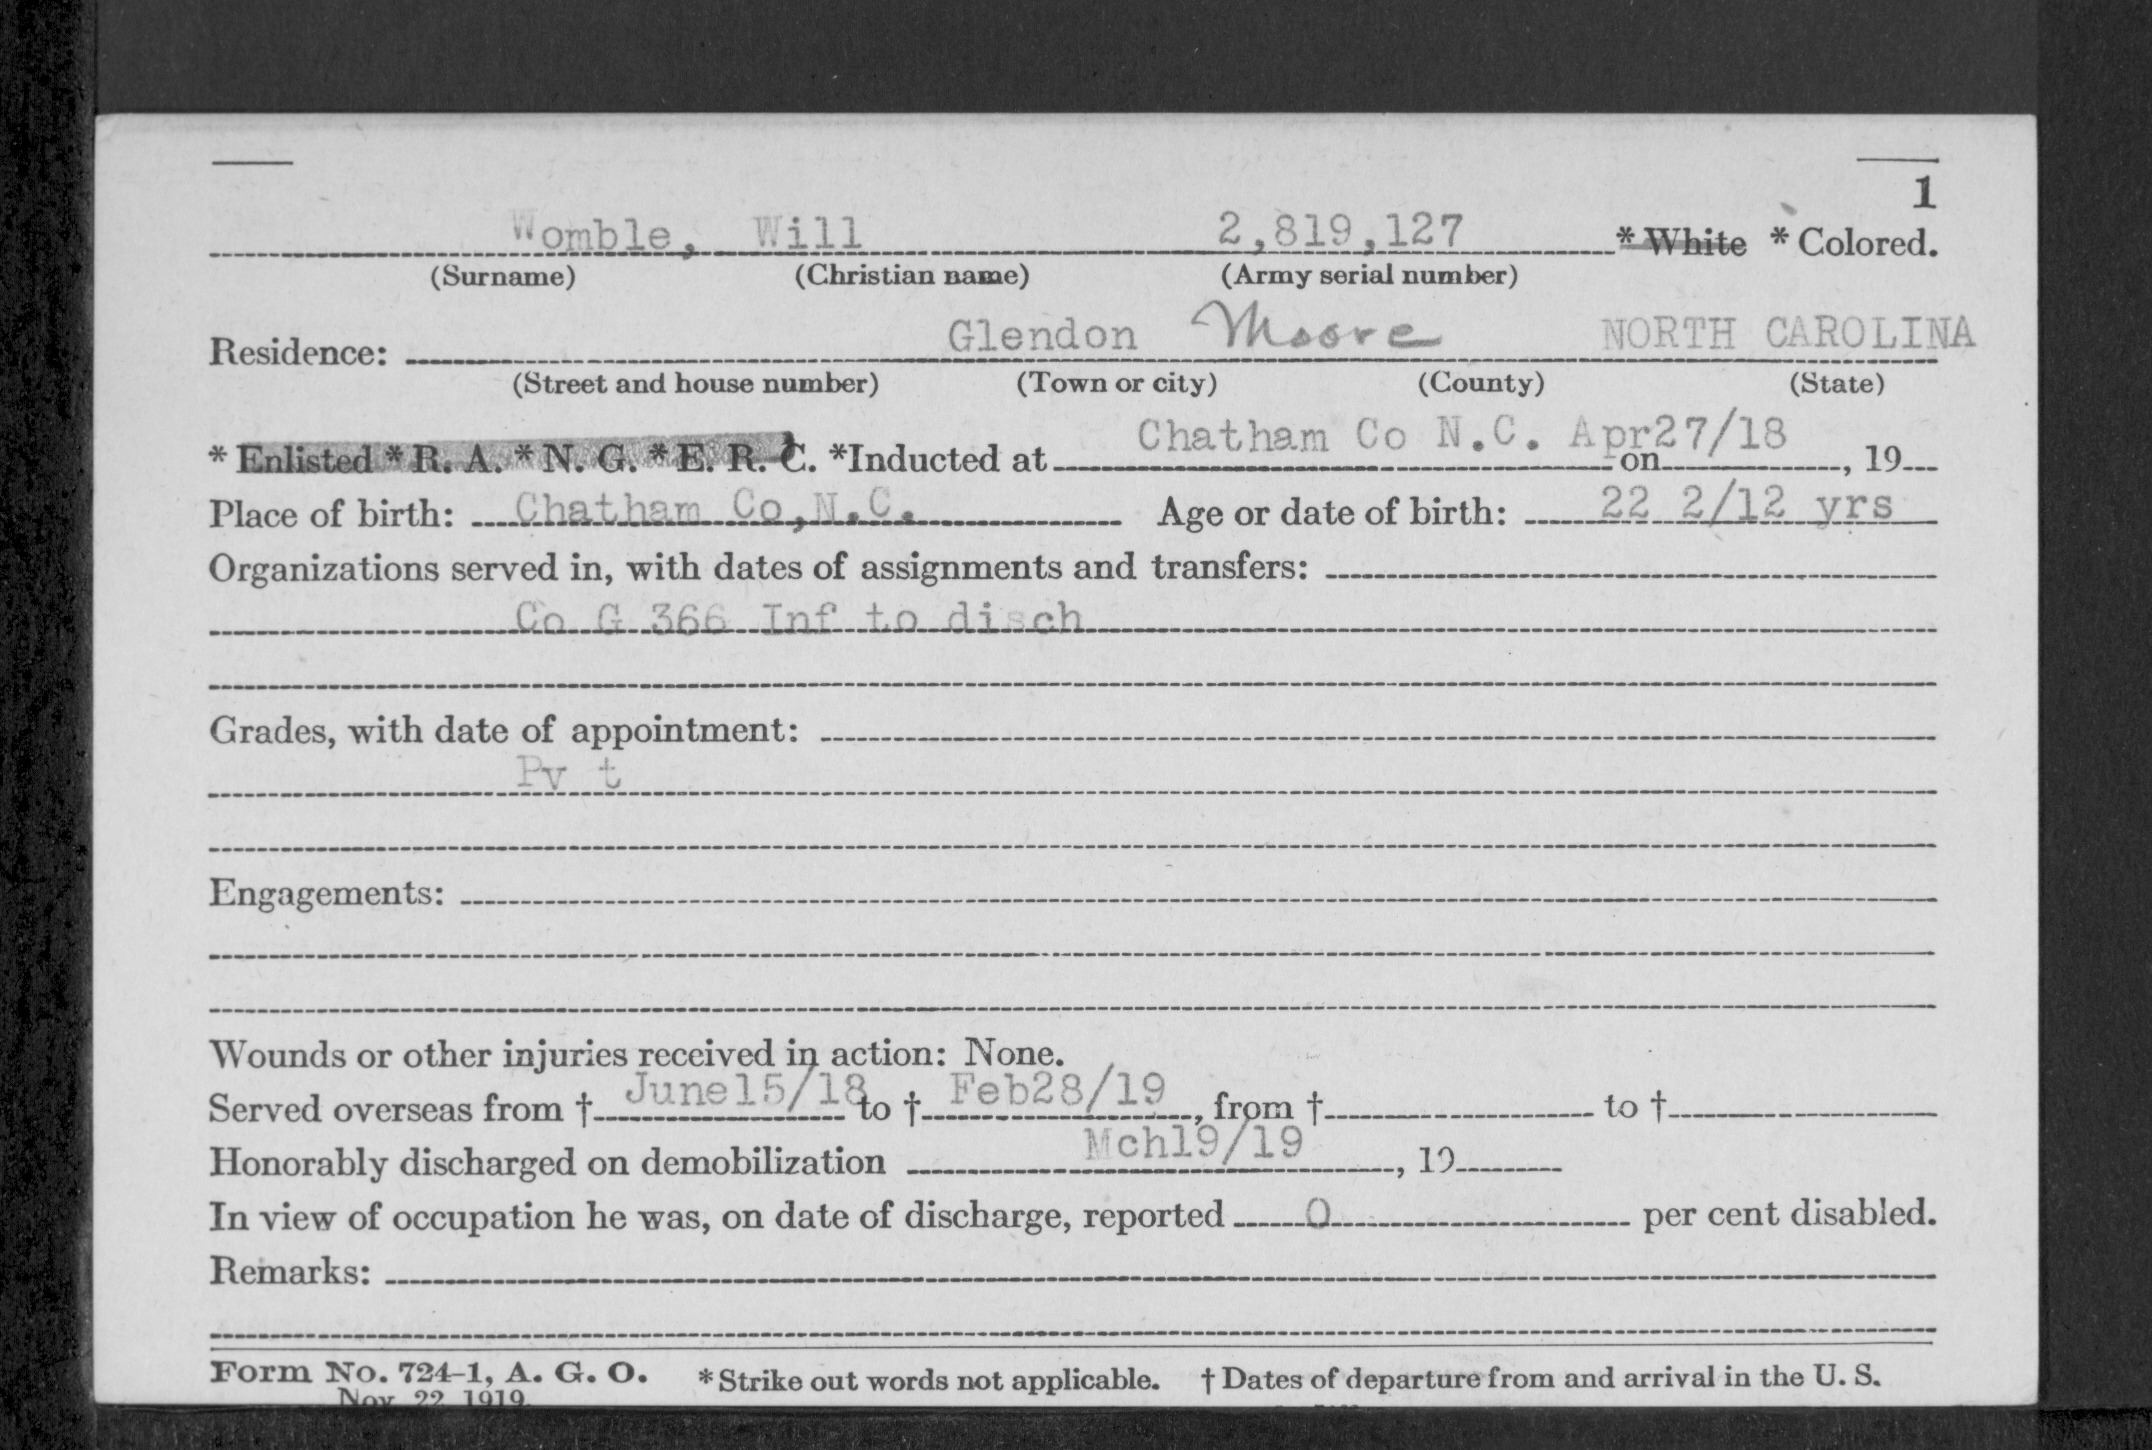 1
Womble, Will 2,819,127 * White * Colored.
(Surname) (Christian name) (Army serial number)
Residence: Glendon Moore NORTH CAROLINA
(Street and house number) (Town or city) (County) (State)
* Enlisted * R. A. * N. G. * E. R. C. *Inducted at Chatham Co N.C. on Apr27/18, 19
Place of birth: Chatham Co,N.C. Age or date of birth: 22 2/12 yrs
Organizations served in, with dates of assignments and transfers:
Co G 366 Inf to disch
Grades, with date of appointment:
Pv t
Engagements:
Wounds or other injuries received in action: None.
Served overseas from † June15/18 to † Feb28/19, from † to †
Honorably discharged on demobilization Mch19/19, 19
In view of occupation he was, on date of discharge, reported 0 per cent disabled.
Remarks:
Form No. 724-1, A. G. O. * Strike out words not applicable. † Dates of departure from and arrival in the U. S.
Nov. 22, 1919.